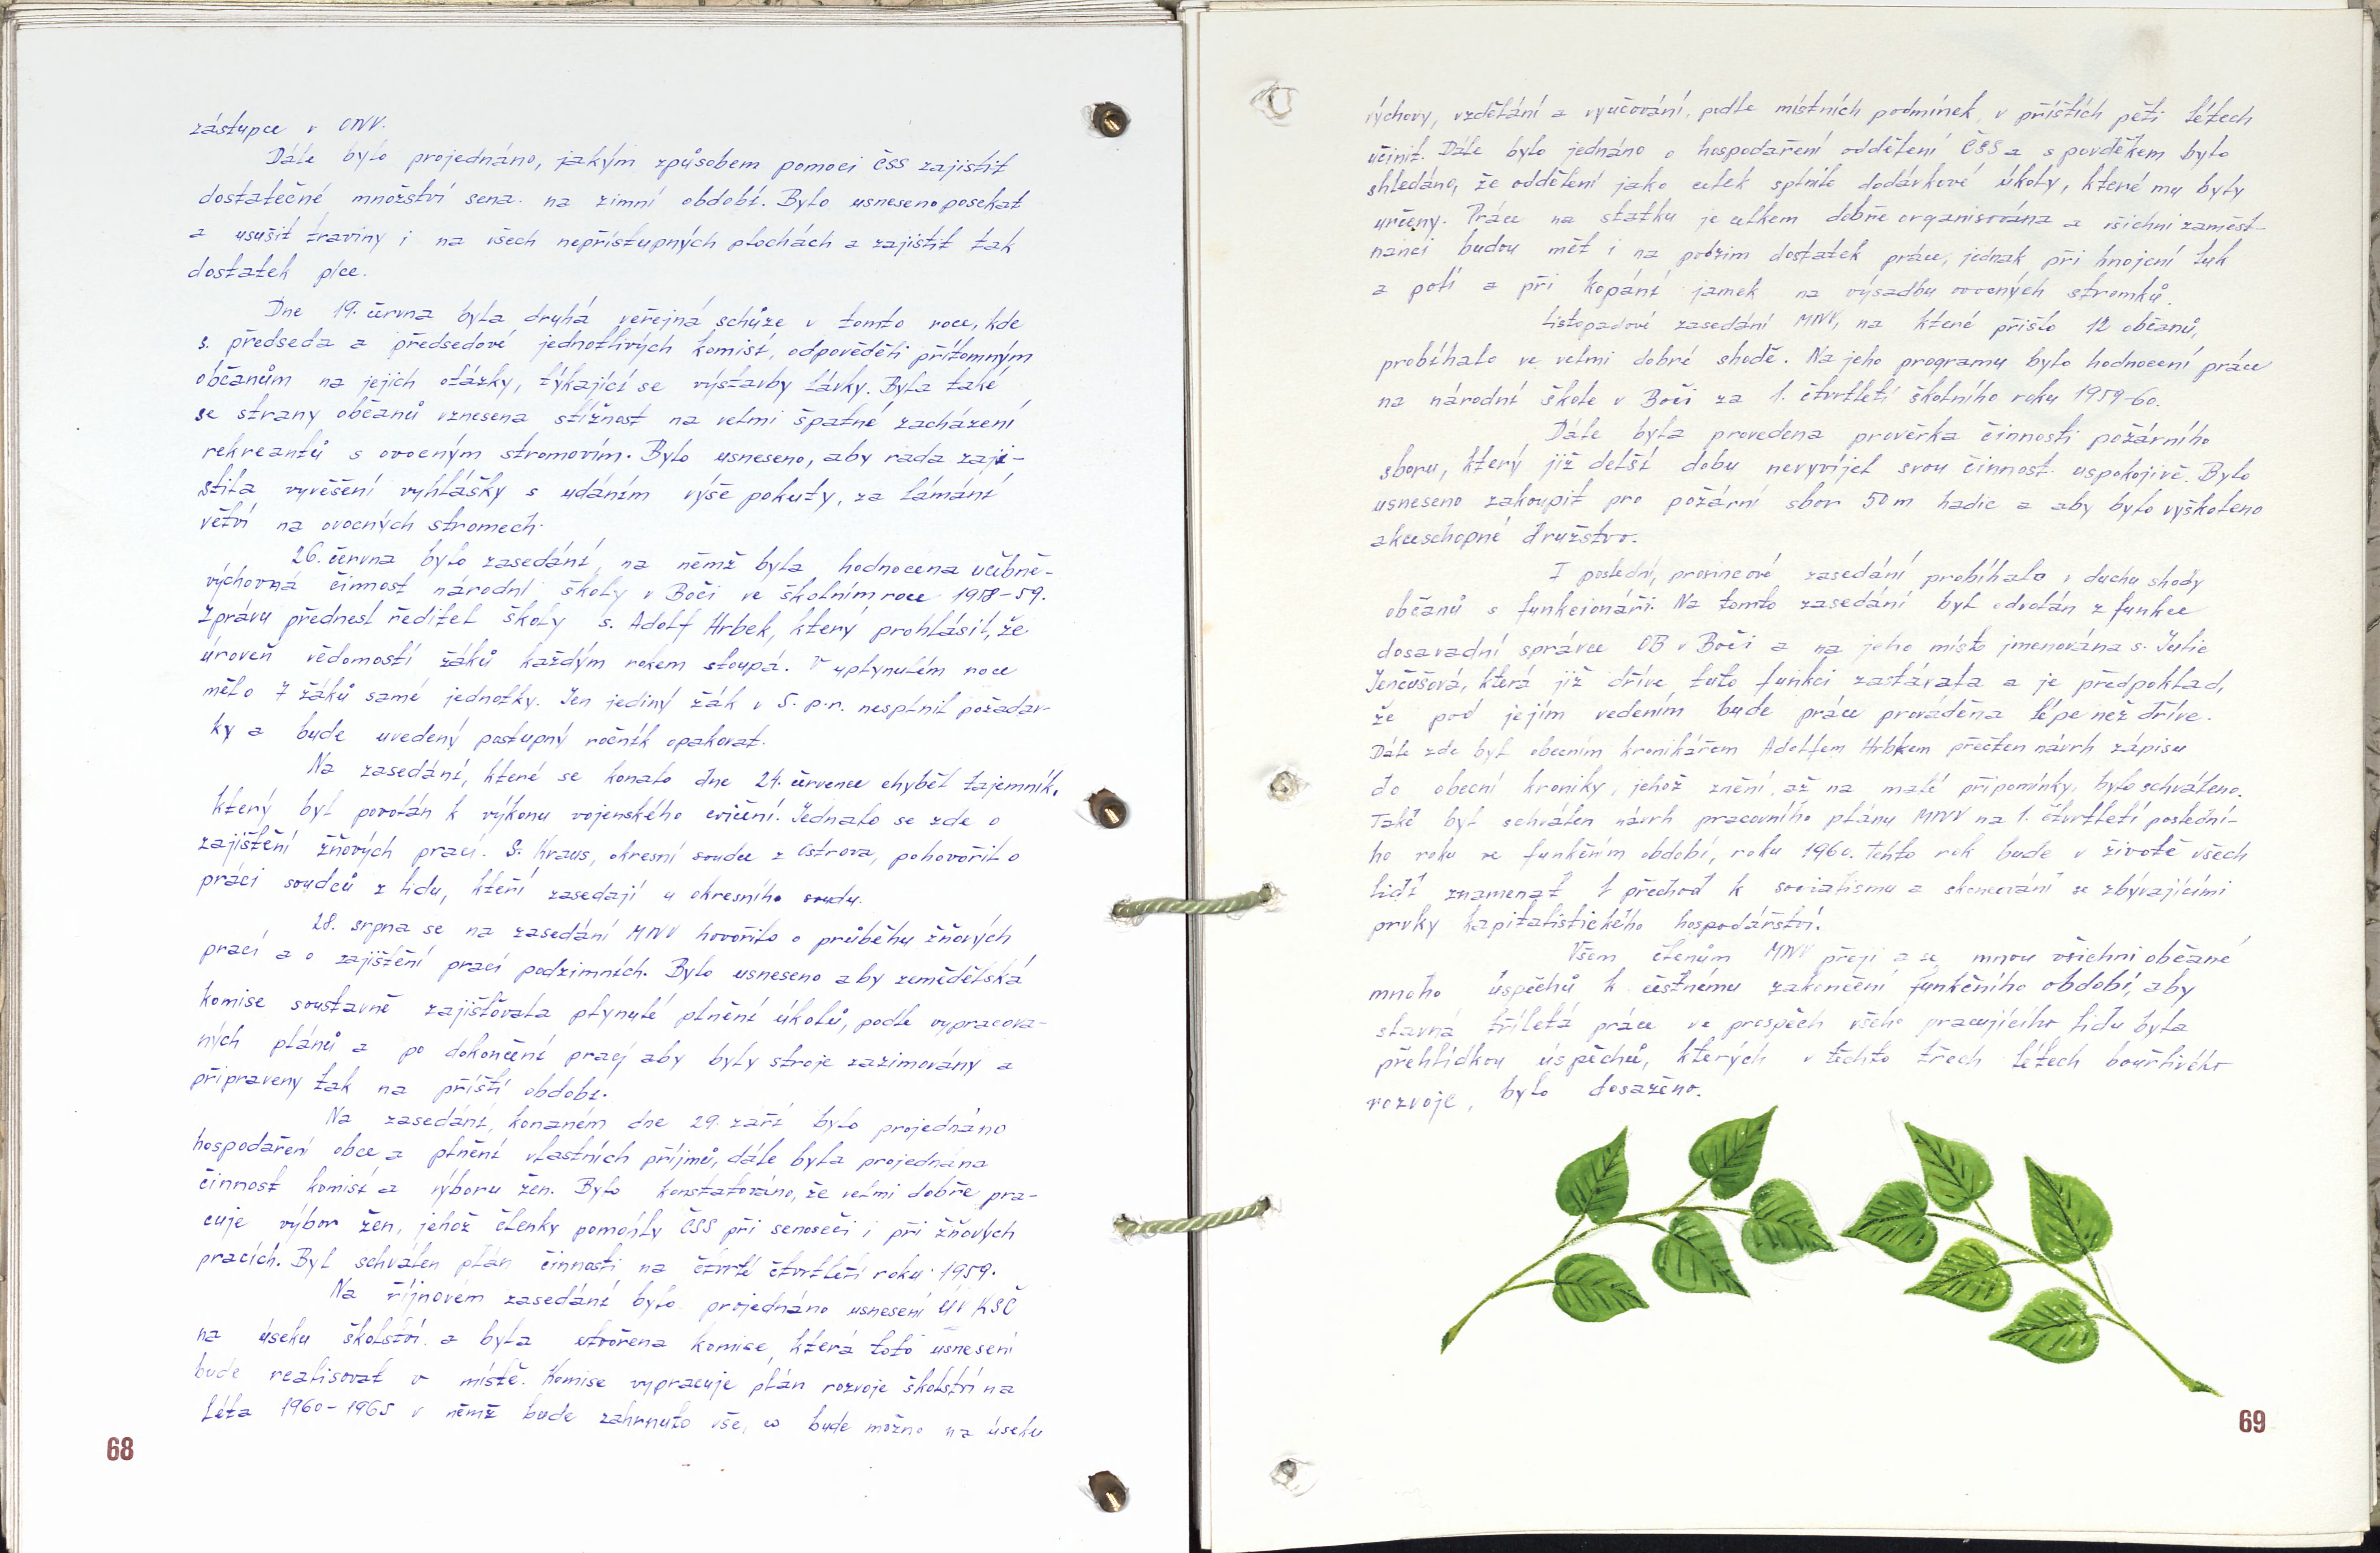 zástupce v ONV.
Dále bylo projednáno, jakým způsobem pomoci ČSS zajistit
dostatečné množství sena na zimní období. Bylo usneseno posekat
a usušit traviny i na všech nepřístupných plochách a zajistit tak
dostatek píce.
Dne 19. června byla druhá veřejná schůze v tomto roce, kde
s. předseda a předsedové jednotlivých komisí, odpověděli přítomným
občanům na jejich otázky, týkající se výstavby lávky. Byla také
se strany občanů vznesena stížnost na velmi špatné zacházení
rekreantů s ovocným stromovím. Bylo usneseno, aby rada zaji-
stila vyvěšení vyhlášky s udáním výše pokuty, za lámání
větví na ovocných stromech.
26. června bylo zasedání, na němž byla hodnocena učebně-
výchovná činnost národní školy v Boči ve školním roce 1958-59.
Zprávu přednesl ředitel školy s. Adolf Hrbek, který prohlásil, že
úroveň vědomostí žáků každým rokem stoupá. V uplynulém roce
mělo 7 žáků samé jednotky. Jen jediný žák v 5. p.r. nesplnil požadav-
ky a bude uvedený postupný ročník opakovat.
Na zasedání, které se konalo dne 24. července chyběl tajemník,
který byl povolán k výkonu vojenského cvičení. Jednalo se zde o
zajištění žňových prací. S. Kraus, okresní soudce z Ostrova, pohovořil o
práci soudců z lidu, kteří zasedají u okresního soudu.
28. srpna se na zasedání MNV hovořilo o průběhu žňových
prací a o zajištění prací podzimních. Bylo usneseno aby zemědělská
komise soustavně zajišťovala plynulé plnění úkolů, podle vypracova-
ných plánů a po dokončení prací aby byly stroje zazimovány a
připraveny tak na příští období.
Na zasedání, konaném dne 29. září bylo projednáno
hospodaření obce a plnění vlastních příjmů, dále byla projednána
činnost komisí a výboru žen. Bylo konstatováno, že velmi dobře pra-
cuje výbor žen, jehož členky pomohly ČSS při senoseči i při žňových
pracích. Byl schválen plán činnosti na čtvrté čtvrtletí roku 1959.
Na říjnovém zasedání bylo projednáno usnesení ÚV KSČ
na úseku školství a byla utvořena komise, která toto usnesení
bude realisovat v místě. Komise vypracuje plán rozvoje školství na
léta 1960-1965 v němž bude zahrnuto vše, co bude možno na úseku
68
výchovy, vzdělání a vyučování, podle místních podmínek, v příštích pěti létech
učinit. Dále bylo jednáno o hospodaření oddělení ČSS a s povděkem bylo
shledáno, že oddělení jako celek splnilo dodávkové úkoly, které mu byly
určeny. Práce na statku je celkem dobře organisována a všichni zaměst-
nanci budou mět i na podzim dostatek práce, jednak při hnojení luk
a polí a při kopání jamek na výsadbu ovocných stromků.
Listopadové zasedání MNV, na které přišlo 12 občanů,
probíhalo ve velmi dobré shodě. Na jeho programu bylo hodnocení práce
na národní škole v Boči za 1. čtvrtletí školního roku 1959-60.
Dále byla provedena prověrka činnosti požárního
sboru, který již delší dobu nevyvíjel svou činnost uspokojivě. Bylo
usneseno zakoupit pro požární sbor 50 m hadic a aby bylo vyškoleno
akceschopné družstvo.
I poslední, prosincové zasedání probíhalo v duchu shody
občanů s funkcionáři. Na tomto zasedání byl odvolán z funkce
dosavadní správce OB v Boči a na jeho místo jmenována s. Julie
Jenčušová, která již dříve tuto funkci zastávala a je předpoklad,
že pod jejím vedením bude práce prováděna lépe než dříve.
Dále zde byl obecním kronikářem Adolfem Hrbkem přečten návrh zápisu
do obecní kroniky, jehož znění, až na malé připomínky, bylo schváleno.
Také byl schválen návrh pracovního plánu MNV na 1. čtvrtletí poslední-
ho roku ve funkčním období, roku 1960. Tehto rok bude v životě všech
lidí znamenat přechod k socialismu a skoncování se zbývajícími
prvky kapitalistického hospodářství.
Všem členům MNV přeji a se mnou všichni občané
mnoho úspěchů k čestnému zakončení funkčního období, aby
slavná tříletá práce ve prospěch všeho pracujícího lidu byla
přehlídkou úspěchů, kterých v těchto třech létech bouřlivého
rozvoje, bylo dosaženo.
69